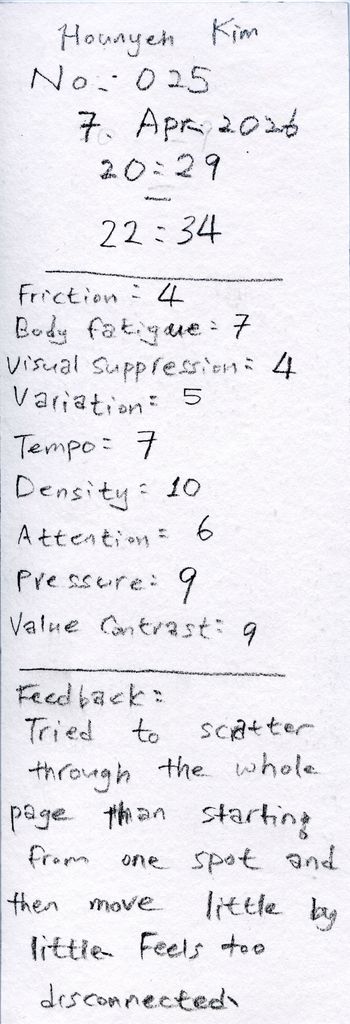 Hounyeh Kim
No.: 025
7. Apr. 2026
20:29
—
22:34
Friction: 4
Body fatigue: 7
Visual Suppression: 4
Variation: 5
Tempo: 7
Density: 10
Attention: 6
Pressure: 9
Value Contrast: 9
Feedback:
Tried to scatter
through the whole
page than starting
from one spot and
then move little by
little. Feels too
disconnected.